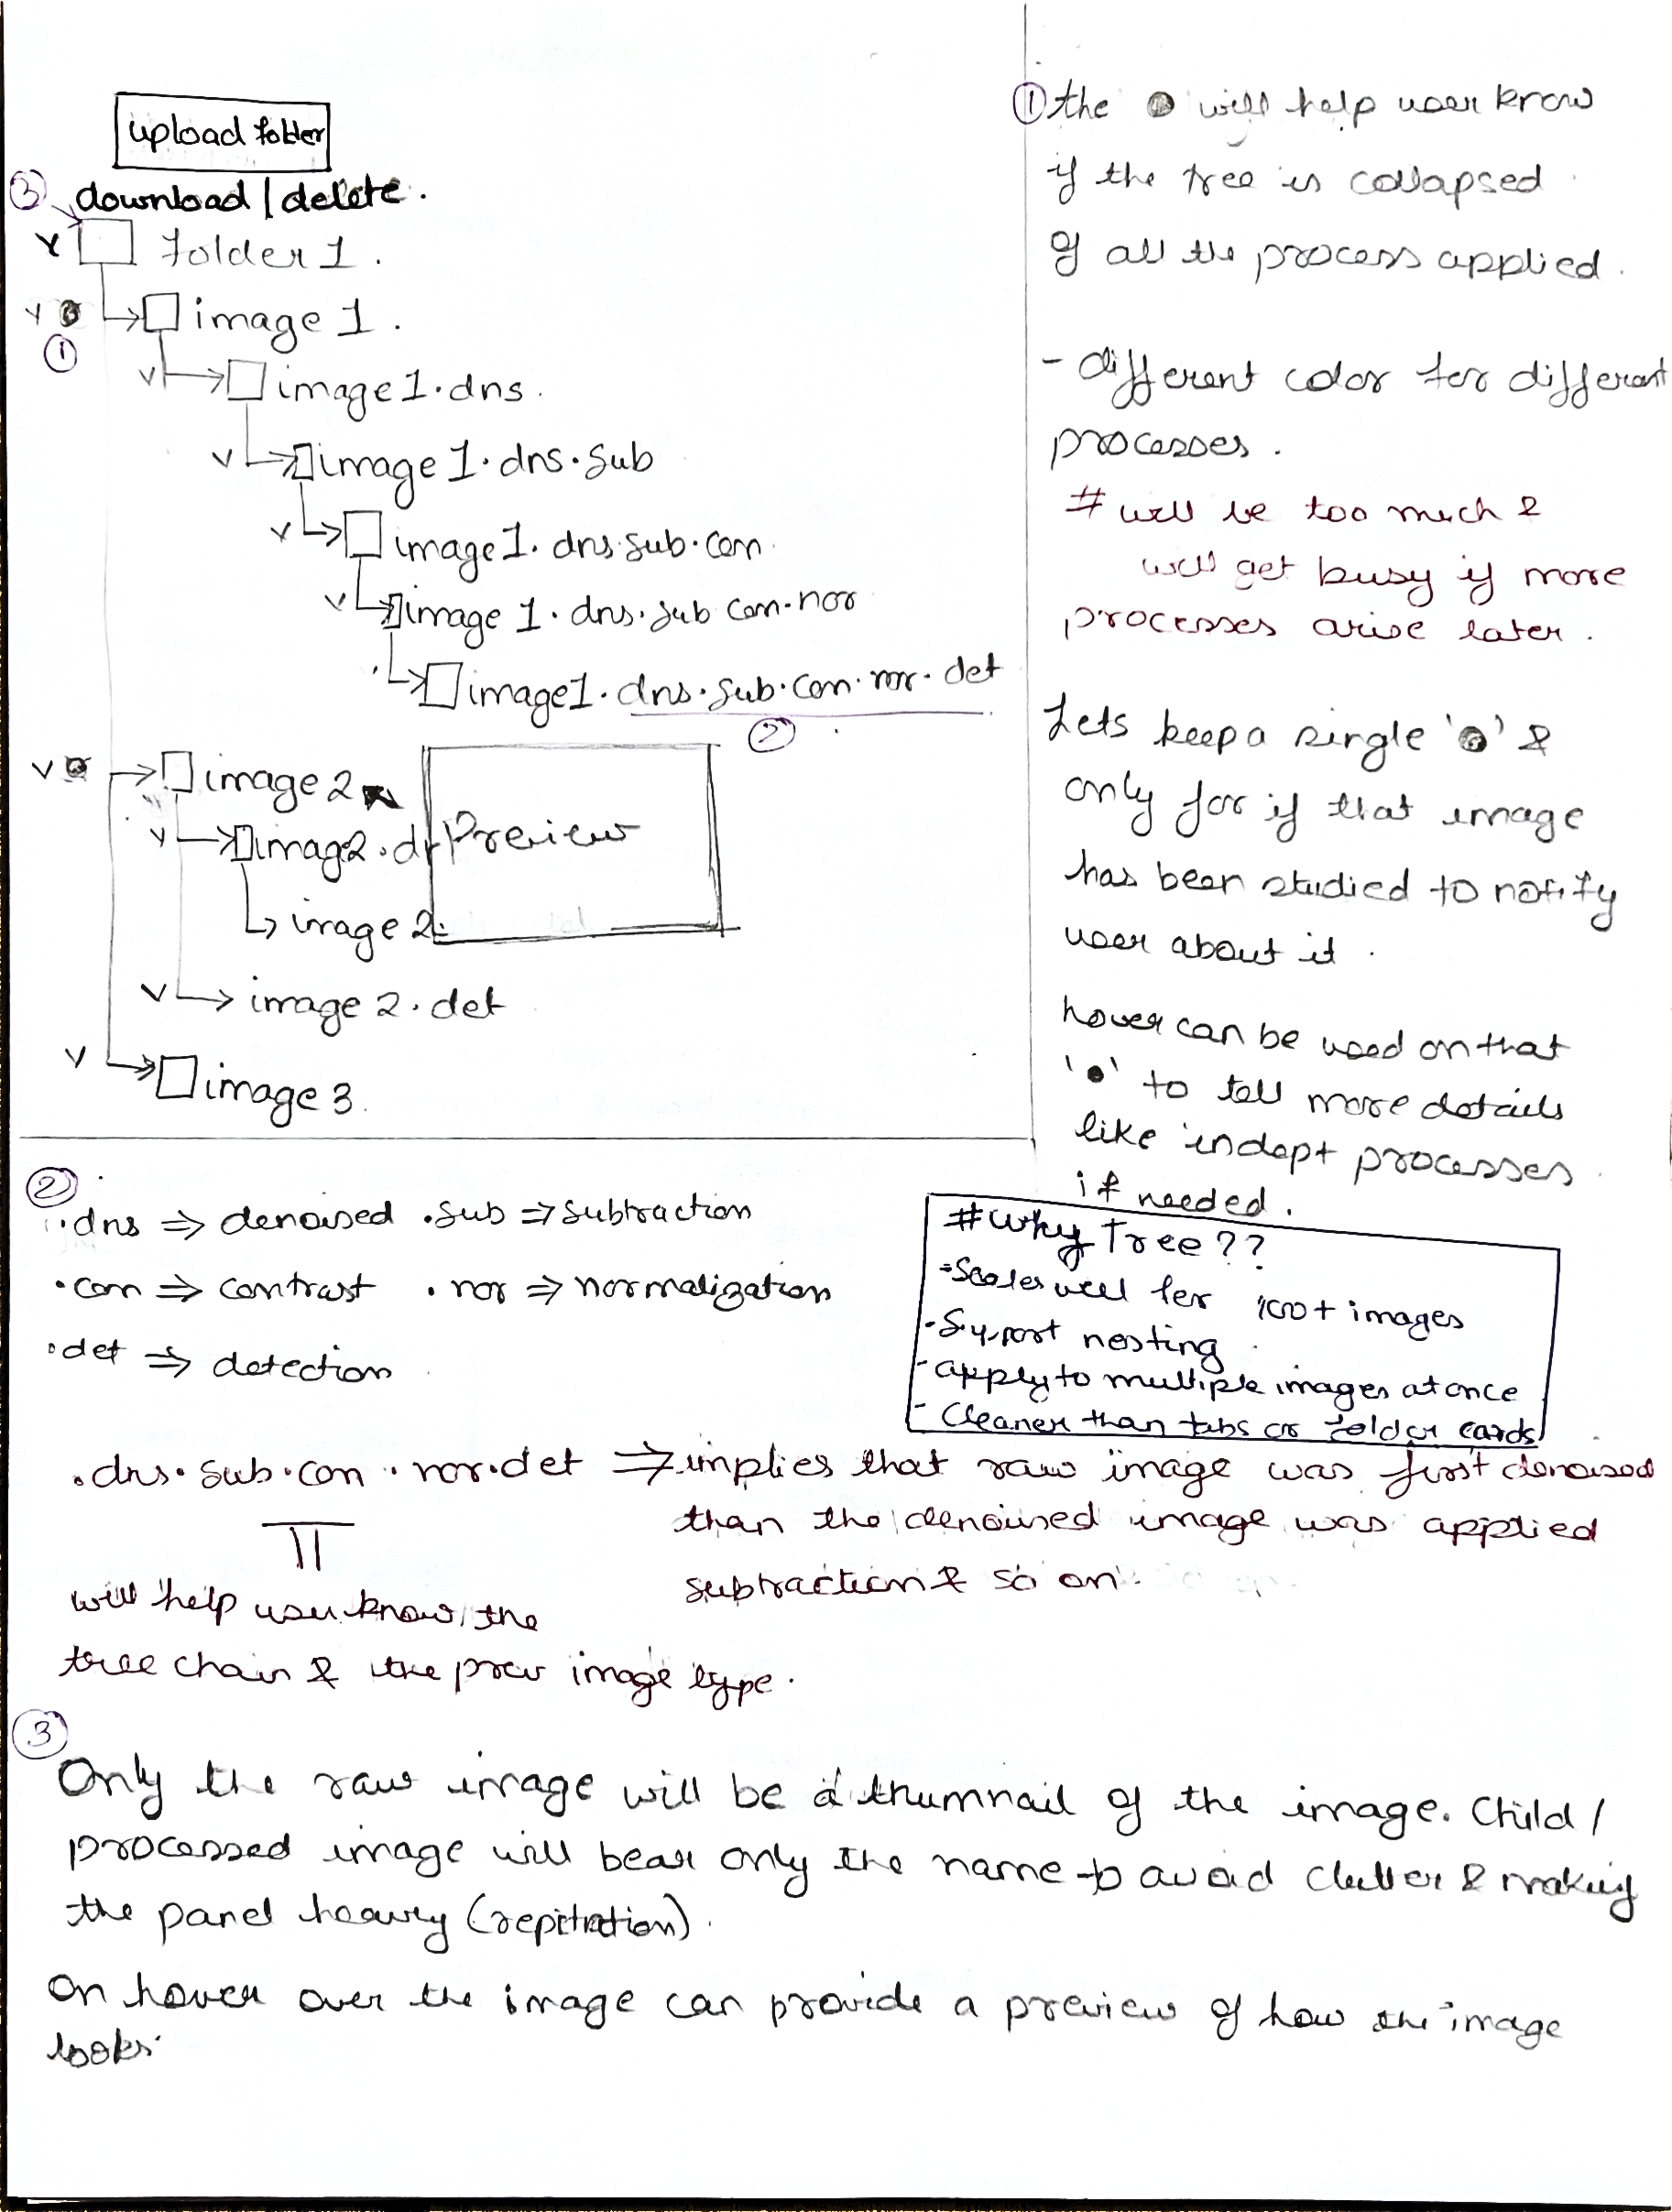 upload folder
③ download / delete.
folder 1.
image 1.
①
image 1.dns.
image 1.dns.sub
image 1. dns.sub.con
image 1. dns.sub con.nor
image1. dns.sub.con.nor. det
②
image 2
imag2.d
Preview
image 2.
image 2. det
image 3.
① the will help user know
if the tree is collapsed.
of all the process applied.
- different color for different
processes.
# will be too much &
will get busy if more
processes arise later.
Lets keep a single ' ' &
only for if that image
has been studied to notify
user about it.
hover can be used on that
' ' to tell more details
like indept processes
if needed.
②
.dns ⇒ denoised .sub ⇒ subtraction
.con ⇒ contrast . nor ⇒ normalization
.det ⇒ detection
# Why Tree??
- Scales well for 100+ images
- Support nesting
- apply to multiple images at once
- Cleaner than tabs or folder cards
.dns. sub.con . nor.det ⇒ implies that raw image was first denoised
than the denoised image was applied
subtraction & so on.
will help user know the
tree chain & the prev image type.
③
Only the raw image will be a thumnail of the image. Child /
processed image will bear only the name to avoid clutter & making
the panel heavy (repitation).
on hover over the image can provide a preview of how the image
looks.